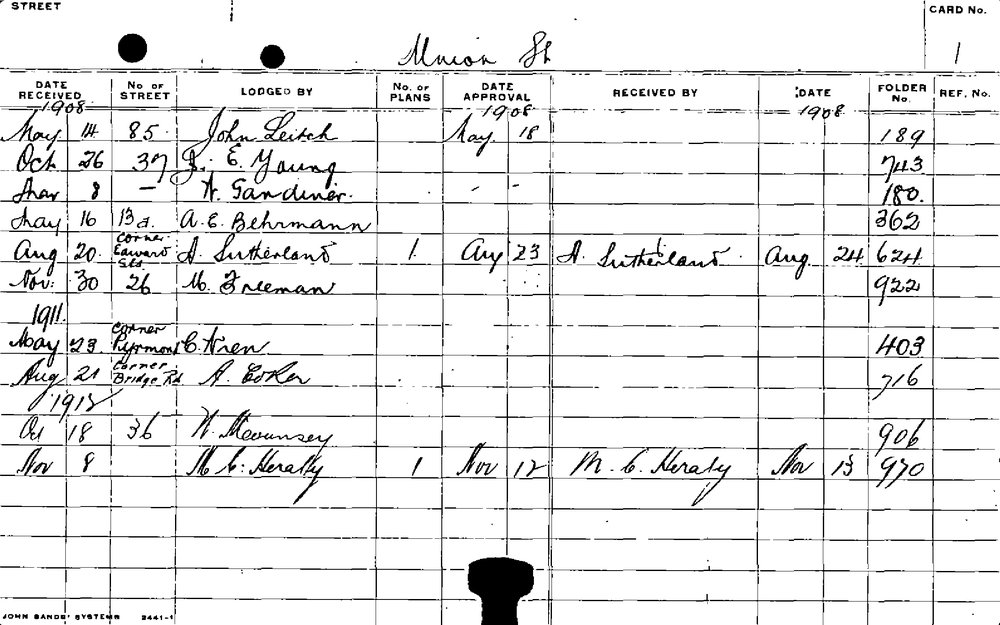 STREET CARD No.
Union St 1
DATE RECEIVED No OF STREET LODGED BY No. OF PLANS DATE APPROVAL RECEIVED BY DATE FOLDER No. REF. No.
1908 1908 1908
May 14 85 John Leitch May 18 189
Oct 26 37 E. Young 743
Mar 8 — W. Gardiner. - - 180.
May 16 13a. A. E. Behrmann 362
Aug 20. corner Edward Sts A. Sutherland 1. Aug 23 A. Sutherland. Aug. 24 624
Nov. 30 26 M. Freeman 922
1911.
May 23. corner Pyrmont C. Wren 403
Aug 21 corner Bridge Rd A. Coker 716
1912
Oct 18 36 W. 906
Nov 8 M. C. Heraty 1 Nov 12 M. C. Heraty Nov 13 970
JOHN SANDS' SYSTEMS 3441-1